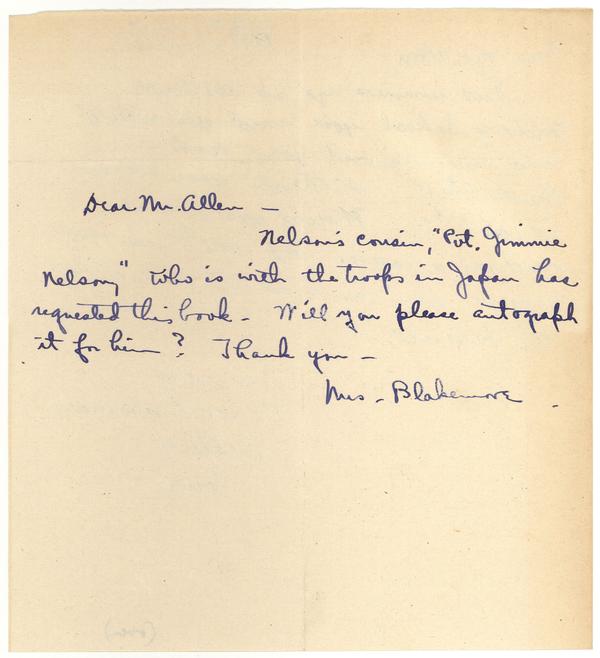 Dear Mr. Allen —
Nelson's cousin, "Pvt. Jimmie
Nelson," who is with the troops in Japan has
requested this book - Will you please autograph
it for him? Thank you —
Mrs - Blakemore
(over)